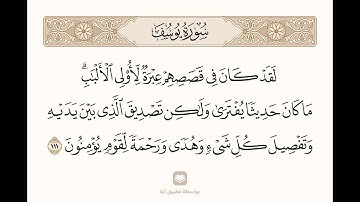 سُورَةُ يُوسُفَ
لَقَدْ كَانَ فِى قَصَصِهِمْ عِبْرَةٌ لِّأُو۟لِى ٱلْأَلْبَـٰبِ ۗ
مَا كَانَ حَدِيثًا يُفْتَرَىٰ وَلَـٰكِن تَصْدِيقَ ٱلَّذِى بَيْنَ يَدَيْهِ
وَتَفْصِيلَ كُلِّ شَىْءٍ وَهُدًى وَرَحْمَةً لِّقَوْمٍ يُؤْمِنُونَ ١١١
بواسطة تطبيق آية